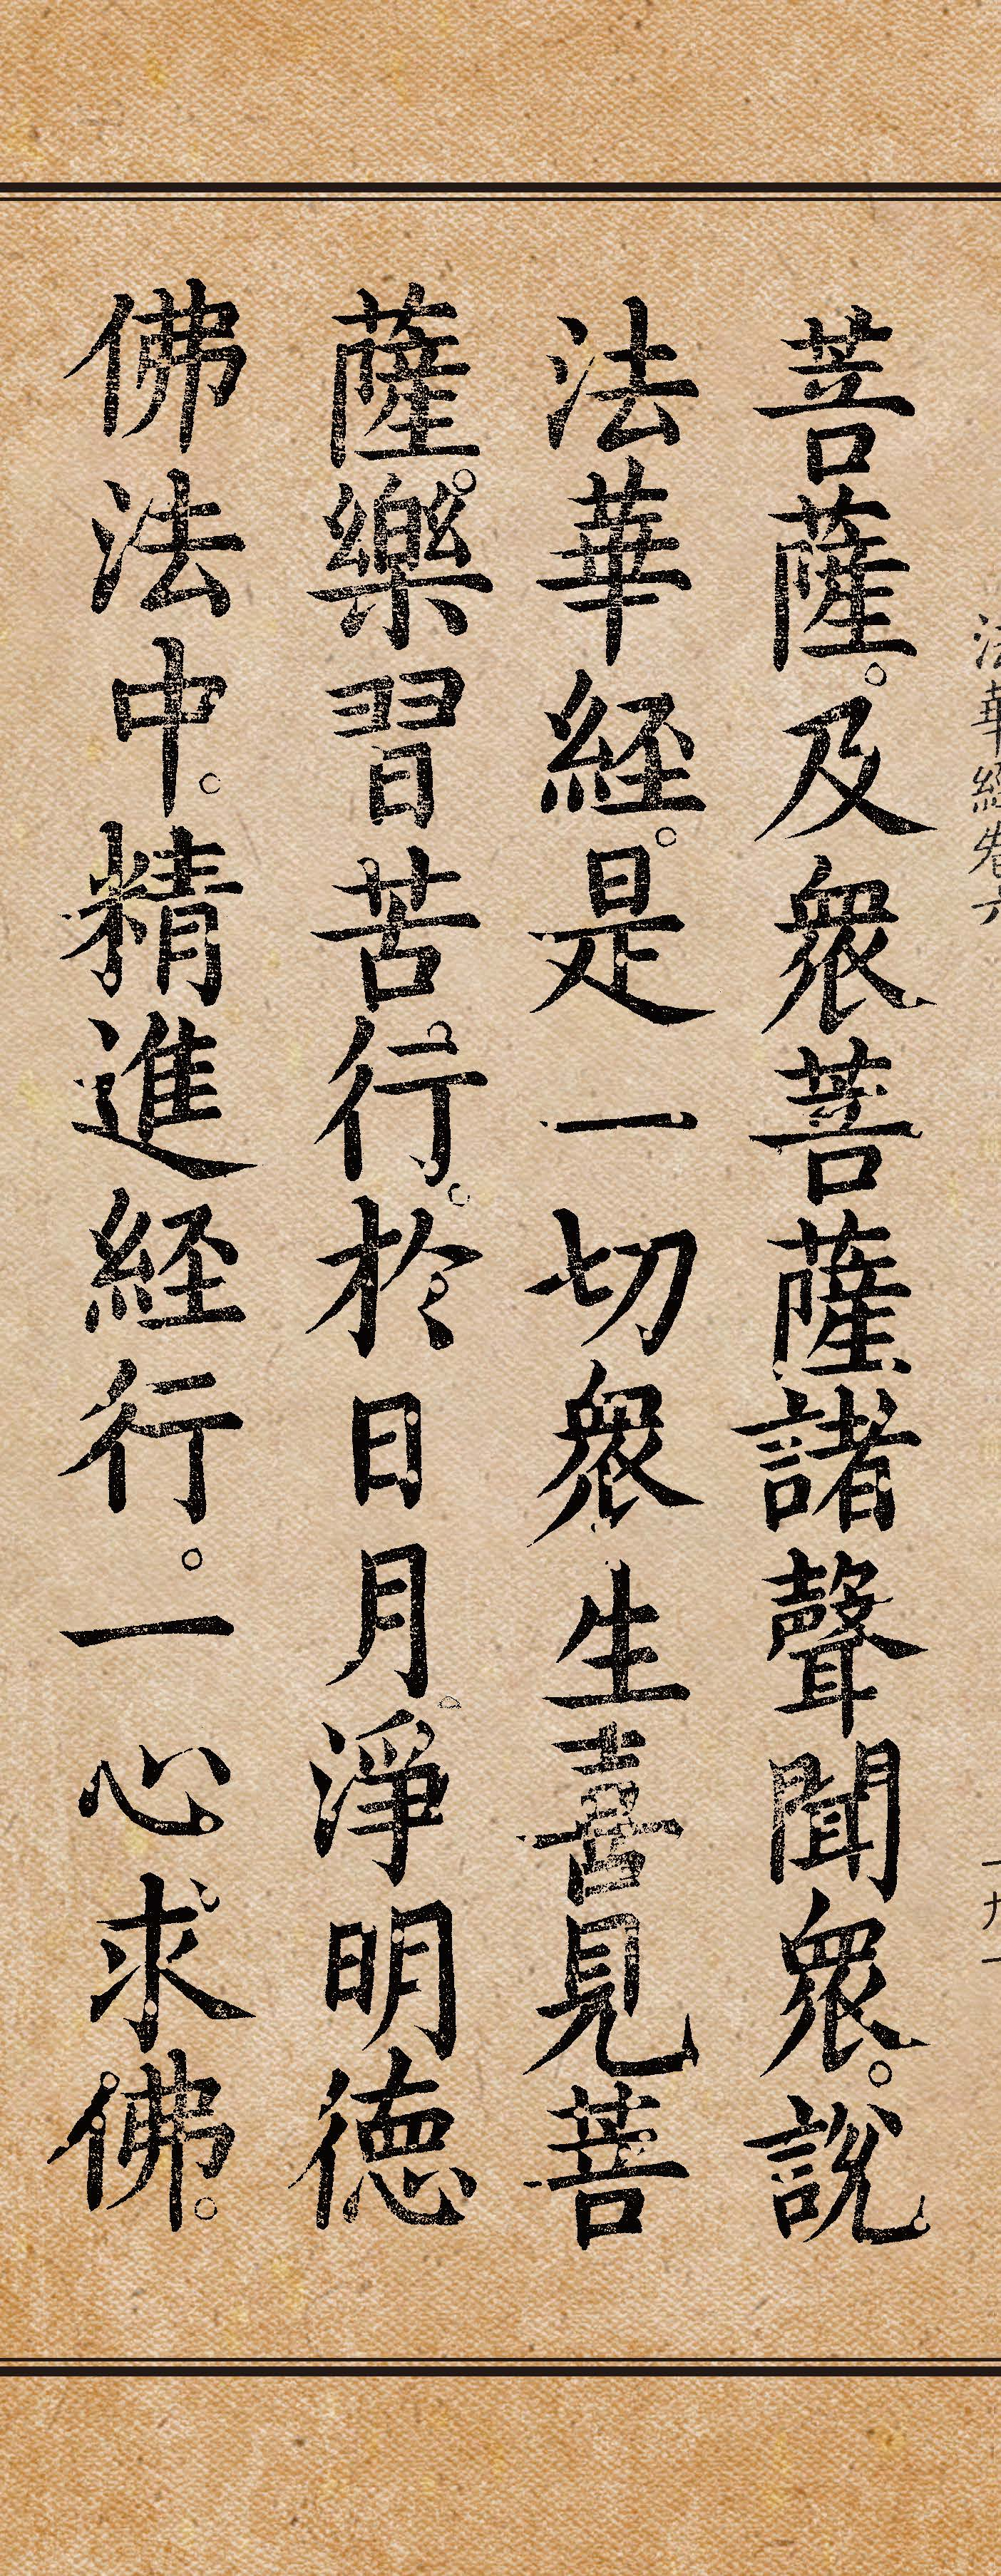 法華經卷六 一九一
菩薩。及衆菩薩諸聲聞衆。說
法華經。是一切衆生喜見菩
薩。樂習苦行。於日月淨明德
佛法中。精進經行。一心求佛。